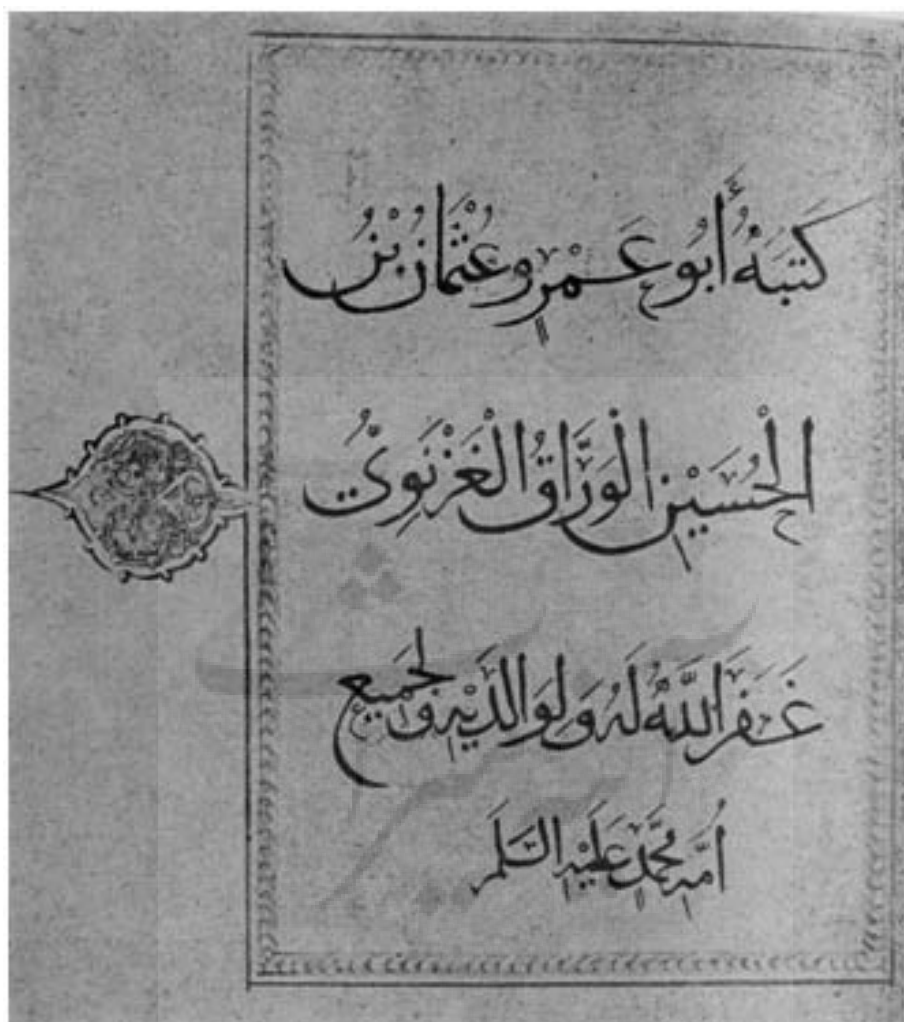 كَتَبَهُ أَبُو عَمْرٍو عُثْمَانُ بْنُ
الْحُسَيْنِ الْوَرَّاقُ الْغَزْنَوِيُّ
غَفَرَ اللَّهُ لَهُ وَلِوَالِدَيْهِ وَلِجَمِيعِ
أُمَّةِ مُحَمَّدٍ عَلَيْهِ السَّلَمُ